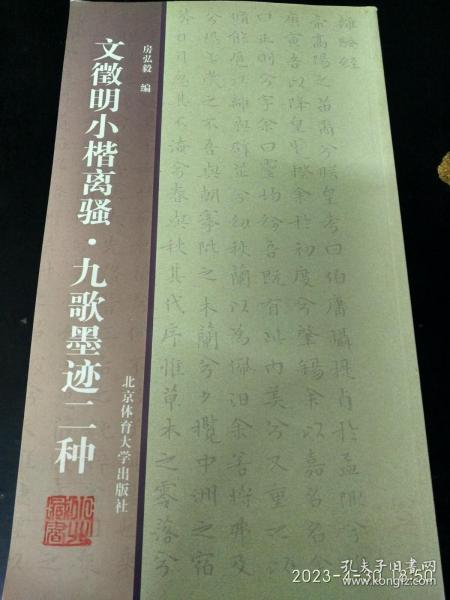 房弘毅 编
文徵明小楷离骚·九歌墨迹二种
北京体育大学出版社
離騷經
帝高陽之苗裔兮朕皇考曰伯庸攝提貞於孟陬兮
惟庚寅吾以降皇覽揆余於初度兮肇錫余以嘉名名余
曰正則兮字余曰靈均紛吾既有此內美兮又重之以
脩能扈江離與辟芷兮紉秋蘭以為佩汩余若將弗及
兮恐年歲之不吾與朝搴阰之木蘭兮夕攬中洲之宿
莽日月忽其不淹兮春與秋其代序惟草木之零落兮
孔夫子旧书网
2023-4-30 18:50